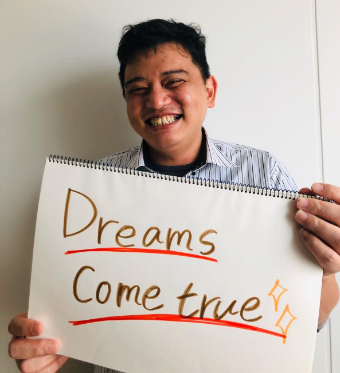 Dreams
Come true